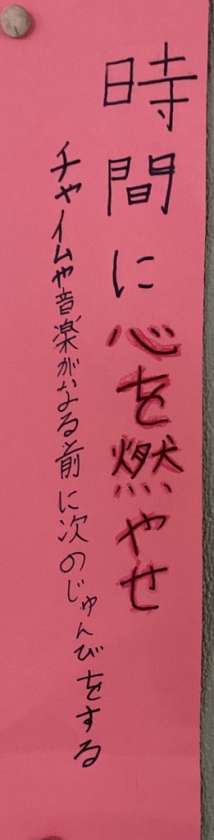 時間に心を燃やせ
チャイムや音楽がなる前に次のじゅんびをする